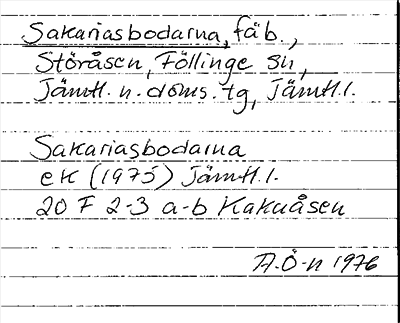 Sakariasbodarna, fäb.,
Störåsen, Föllinge sn,
Jämtl. n. doms. tg, Jämtl. l.
Sakariasbodarna
ek (1975) Jämtl. l.
20 F 2-3 a-b Kakuåsen
A.Ö-n 1976